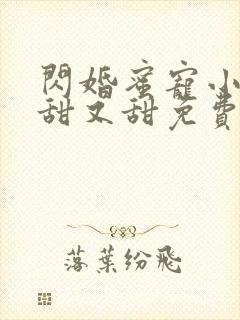 閃婚蜜寵小
甜又甜免費
落葉紛飛